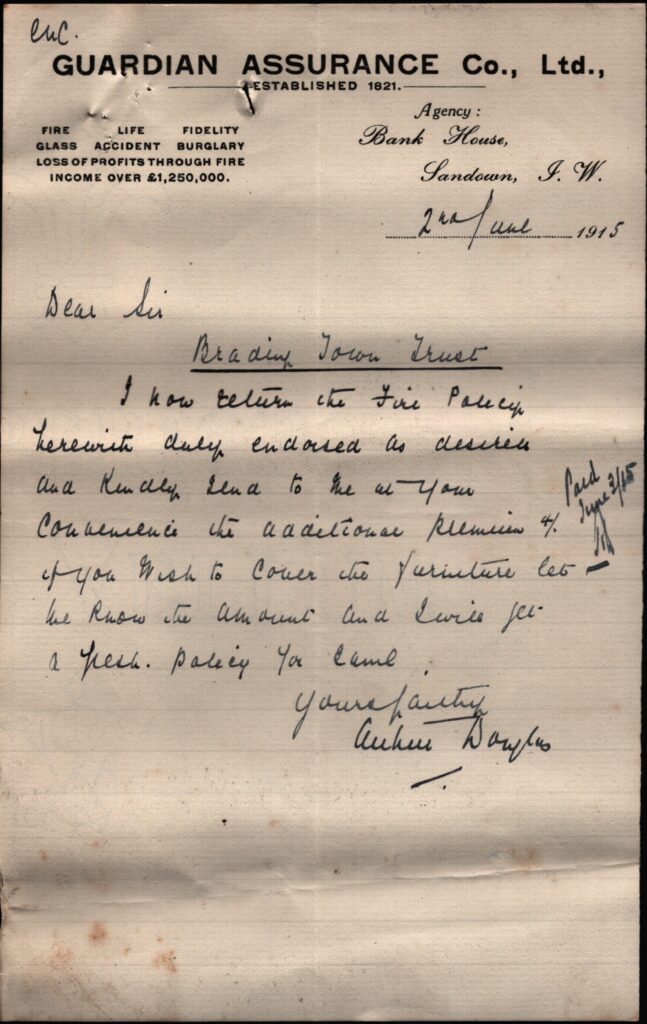 enc.
GUARDIAN ASSURANCE Co., Ltd.,
ESTABLISHED 1821.
FIRE LIFE FIDELITY
GLASS ACCIDENT BURGLARY
LOSS OF PROFITS THROUGH FIRE
INCOME OVER £1,250,000.
Agency:
Bank House,
Sandown, I. W.
2nd June 1915
Dear Sir
Brading Town Trust
I now return the Fire Policy
herewith duly endorsed as desired
and Kindly send to me at your
Convenience the additional premium 4/.
Paid
June 3/15
if you wish to cover the furniture let
me know the amount and I will get
a fresh policy for same.
Yours faithy
Arthur Douglas